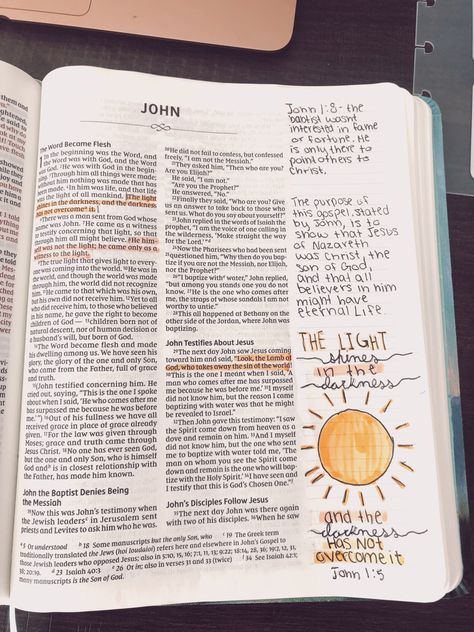 JOHN
The Word Became Flesh
1 In the beginning was the Word, and
the Word was with God, and the Word
was God. 2 He was with God in the begin-
ning. 3 Through him all things were made;
without him nothing was made that has
been made. 4 In him was life, and that life
was the light of all mankind. 5 The light
shines in the darkness, and the darkness
has not overcome it.
6 There was a man sent from God whose
name was John. 7 He came as a witness
to testify concerning that light, so that
through him all might believe. 8 He him-
self was not the light; he came only as a
witness to the light.
9 The true light that gives light to every-
one was coming into the world. 10 He was in
the world, and though the world was made
through him, the world did not recognize
him. 11 He came to that which was his own,
but his own did not receive him. 12 Yet to all
who did receive him, to those who believed
in his name, he gave the right to become
children of God — 13 children born not of
natural descent, nor of human decision or
a husband's will, but born of God.
14 The Word became flesh and made
his dwelling among us. We have seen his
glory, the glory of the one and only Son,
who came from the Father, full of grace
and truth.
15 (John testified concerning him. He
cried out, saying, "This is the one I spoke
about when I said, 'He who comes after me
has surpassed me because he was before
me.'") 16 Out of his fullness we have all
received grace in place of grace already
given. 17 For the law was given through
Moses; grace and truth came through
Jesus Christ. 18 No one has ever seen God,
but the one and only Son, who is himself
God and is in closest relationship with
the Father, has made him known.
John the Baptist Denies Being
the Messiah
19 Now this was John's testimony when
the Jewish leaders in Jerusalem sent
priests and Levites to ask him who he was.
20 He did not fail to confess, but confessed
freely, "I am not the Messiah."
21 They asked him, "Then who are you?
Are you Elijah?"
He said, "I am not."
"Are you the Prophet?"
He answered, "No."
22 Finally they said, "Who are you? Give
us an answer to take back to those who
sent us. What do you say about yourself?"
23 John replied in the words of Isaiah the
prophet, "I am the voice of one calling in
the wilderness, 'Make straight the way
for the Lord.'"
24 Now the Pharisees who had been sent
25 questioned him, "Why then do you bap-
tize if you are not the Messiah, nor Elijah,
nor the Prophet?"
26 "I baptize with water," John replied,
"but among you stands one you do not
know. 27 He is the one who comes after
me, the straps of whose sandals I am not
worthy to untie."
28 This all happened at Bethany on the
other side of the Jordan, where John was
baptizing.
John Testifies About Jesus
29 The next day John saw Jesus coming
toward him and said, "Look, the Lamb of
God, who takes away the sin of the world!
30 This is the one I meant when I said, 'A
man who comes after me has surpassed
me because he was before me.' 31 I myself
did not know him, but the reason I came
baptizing with water was that he might
be revealed to Israel."
32 Then John gave this testimony: "I saw
the Spirit come down from heaven as a
dove and remain on him. 33 And I myself
did not know him, but the one who sent
me to baptize with water told me, 'The
man on whom you see the Spirit come
down and remain is the one who will bap-
tize with the Holy Spirit.' 34 I have seen and
I testify that this is God's Chosen One."
John's Disciples Follow Jesus
35 The next day John was there again
with two of his disciples. 36 When he saw
John 1:8 - the
baptist wasnt
interested in fame
or fortune. He
is only there to
point others to
Christ.
The purpose of
this gospel, stated
by John, is to
show that Jesus
of Nazareth
was Christ, the
son of God,
and that all
believers in him
might have
eternal life.
THE LIGHT
shines
in the
darkness
and the
darkness
HAS NOT
overcome it
John 1:5